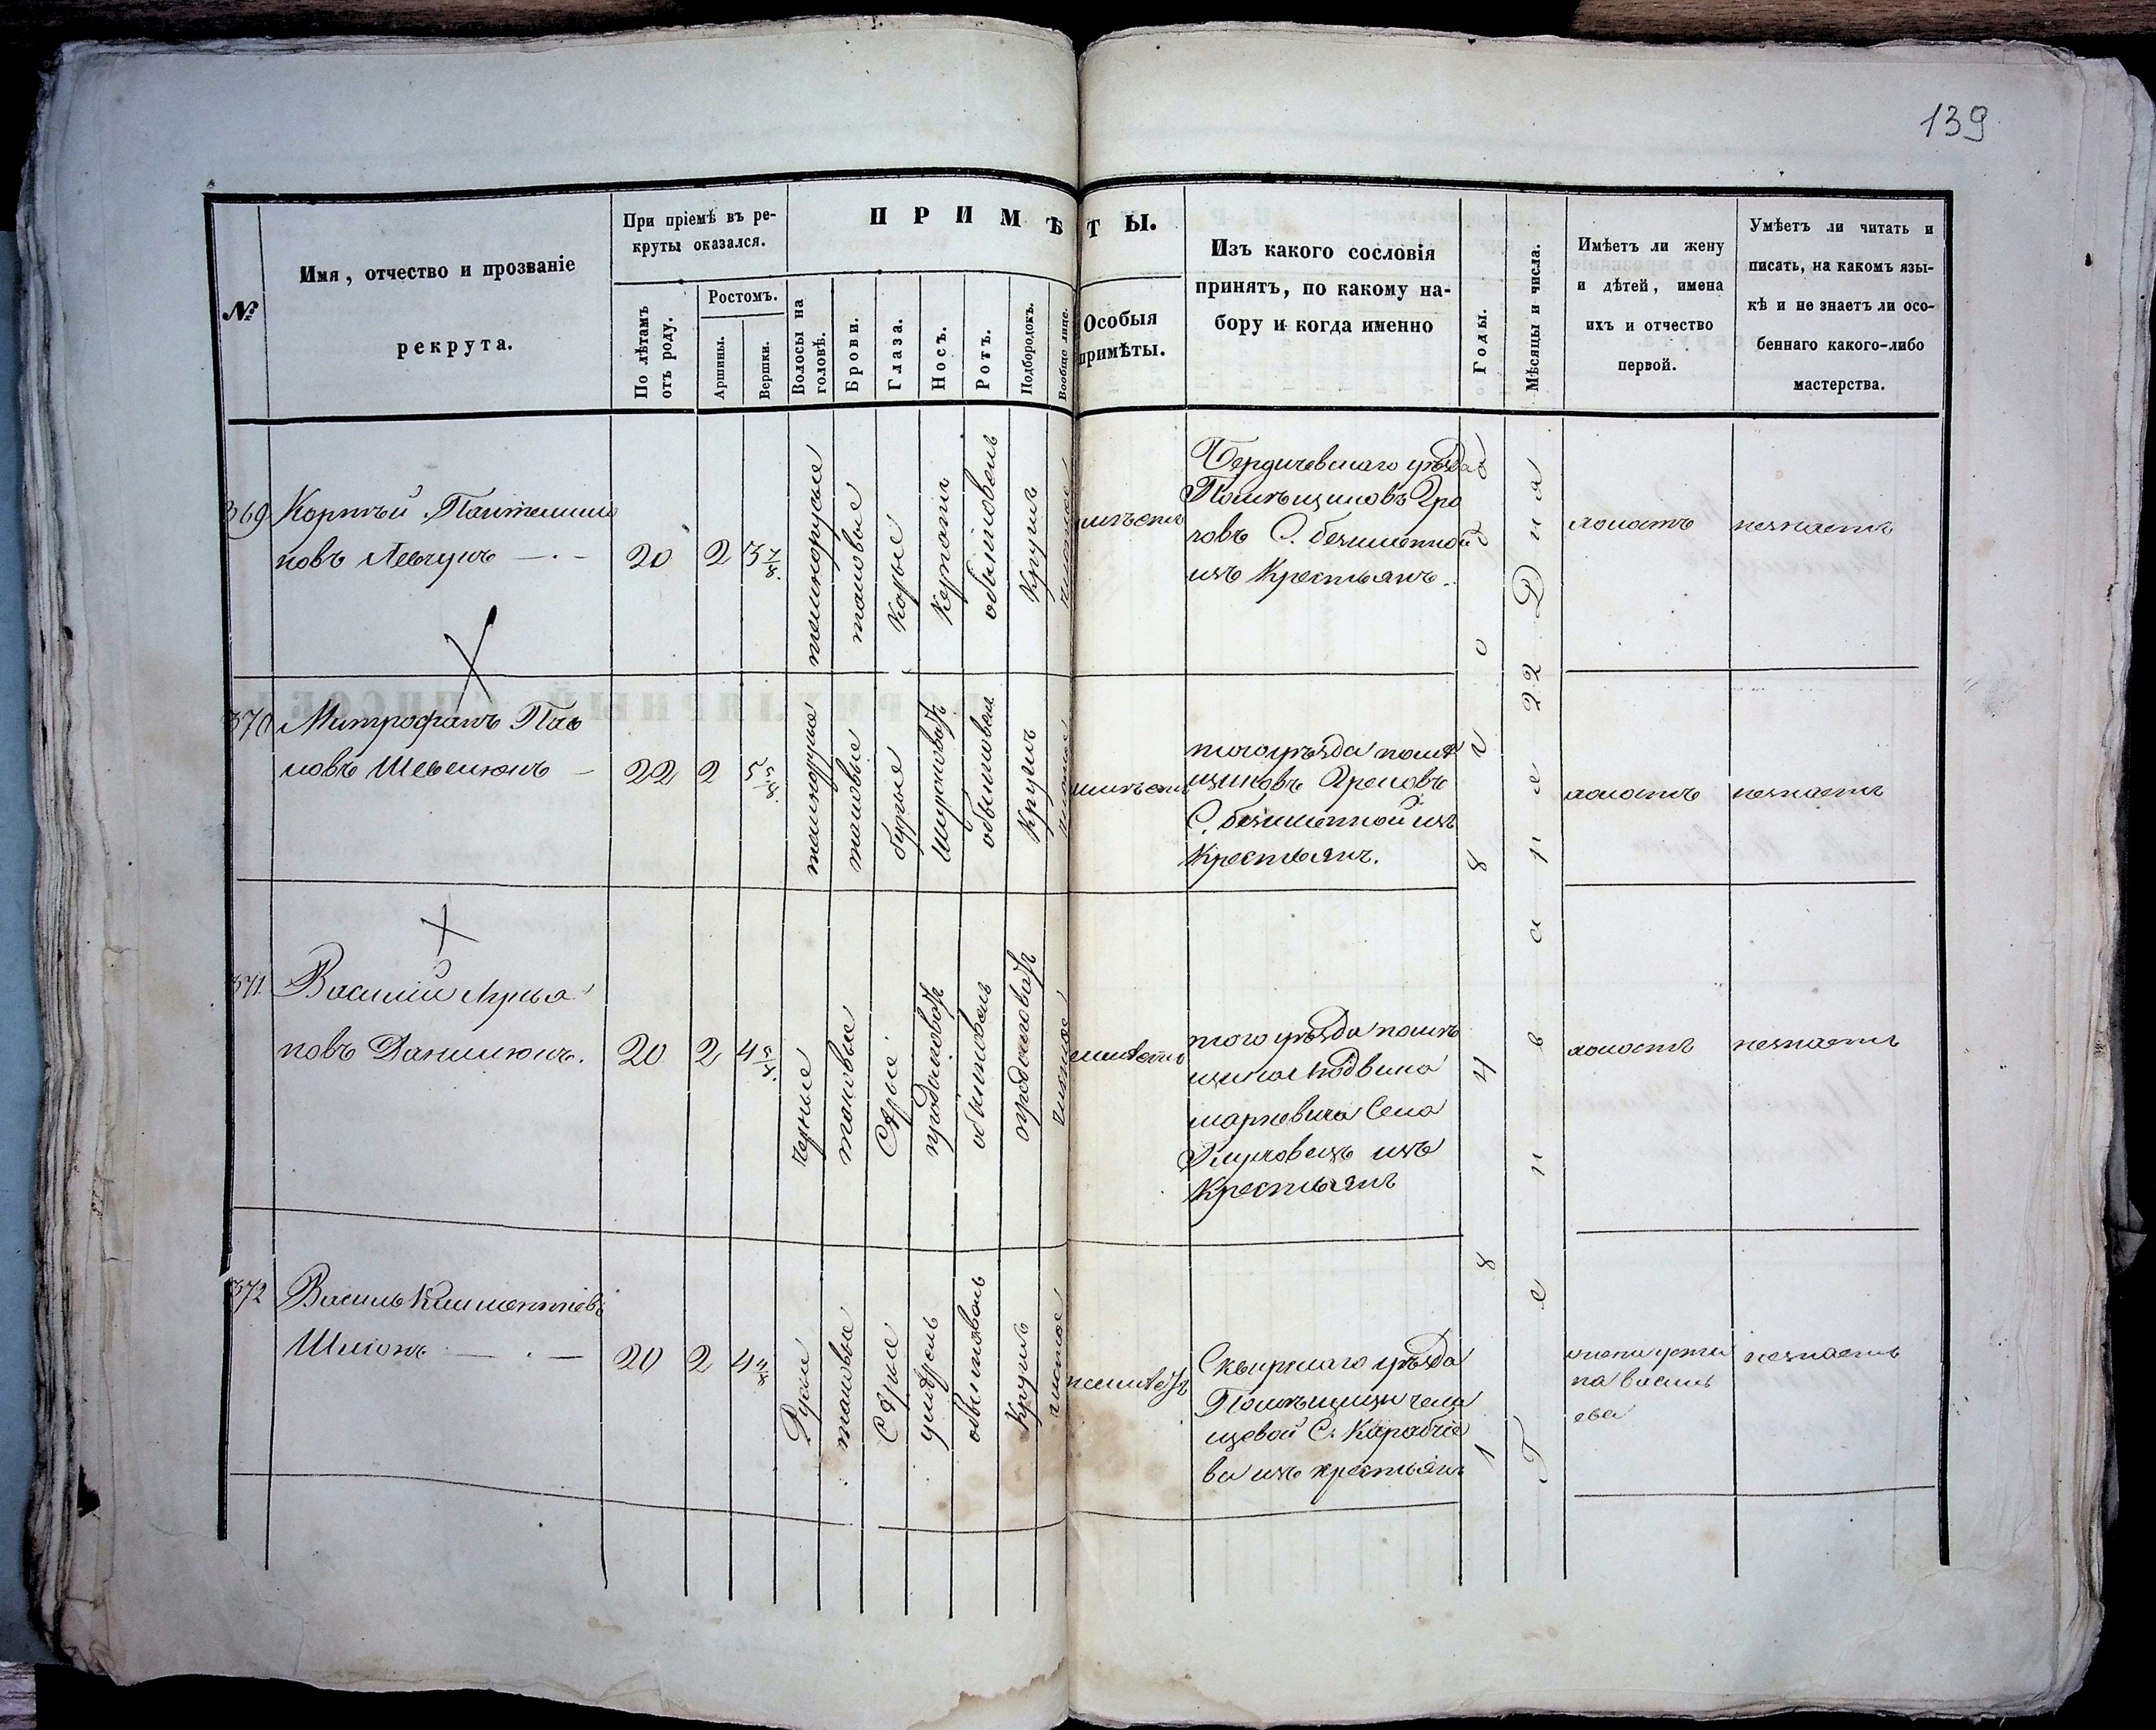 139
№
Имя, отчество и прозваніе
рекрута.
При пріемѣ въ ре-
круты оказался.
По лѣтамъ
отъ роду.
Ростомъ.
Аршины.
Вершки.
ПРИМѢТЫ.
Волосы на
головѣ.
Брови.
Глаза.
Носъ.
Ротъ.
Подбородокъ.
Вообще лице.
Особыя
примѣты.
Изъ какого сословія
принятъ, по какому на-
бору и когда именно
Годы.
Мѣсяцы и числа.
Имѣетъ ли жену
и дѣтей, имена
ихъ и отчество
первой.
Умѣетъ ли читать и
писать, на какомъ язы-
кѣ и не знаетъ ли осо-
беннаго какого-либо
мастерства.
369
Корнѣй
новъ Левчукъ
20
2
3 7/8
темнорусые
таковые
Карые
обыкновенъ
Круглъ
чистое
Бердичевскаго уѣзда
Помѣщиковъ
С. безименной
изъ Крестьянъ.
холостъ
незнаетъ
370
Митрофанъ Пав
ловъ Шевелюкъ
22
2
5 5/8
темнорусые
таковые
бурые
широковатъ
обыкновен
Круглъ
чистое
того уѣзда помѣ
щиковъ
С. безименной изъ
Крестьянъ.
холостъ
незнаетъ
371
Василій
новъ Данилюкъ.
20
2
4
черные
таковые
Сѣрые
продолговатъ
обыкновенъ
продолговатъ
чистое
того уѣзда помѣ
щика Людвика
Марковича Села
изъ
Крестьянъ
холостъ
незнаетъ
372
Василь Климентіевъ
20
2
4 4/8
Русые
таковые
Сѣрые
умѣрен
обыкновенъ
Круглъ
чистое
Сквирскаго уѣзда
Помѣщицы
С. Карабчіе
ва изъ крестьянъ
жена усти
на василь
ева
незнаетъ
Генваря 22 Дня